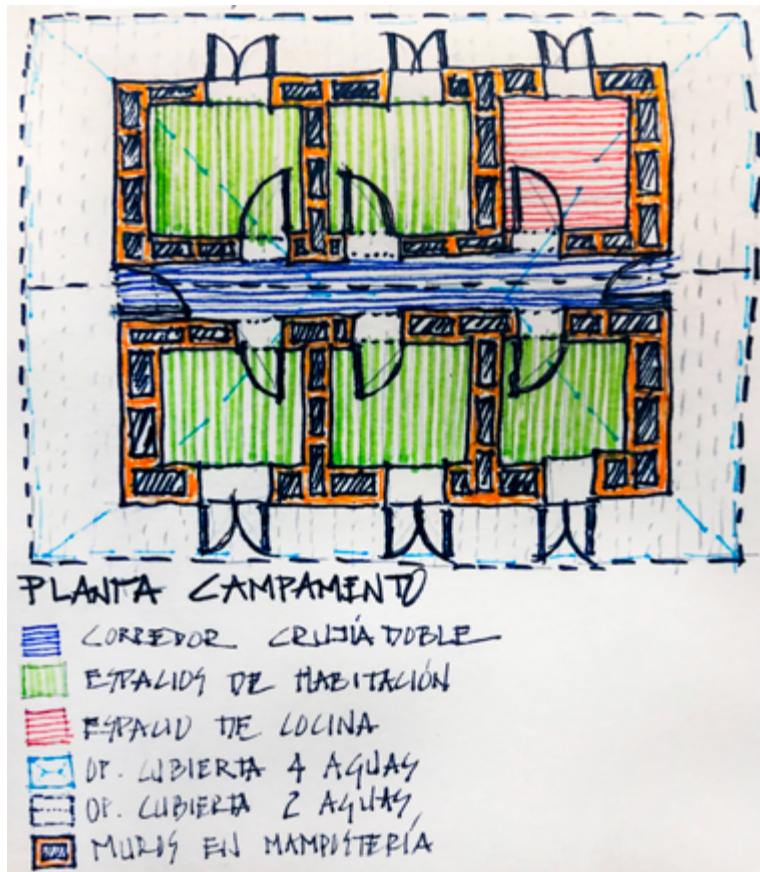 PLANTA CAMPAMENTO
CORREDOR CRUJÍA DOBLE
ESPACIOS DE HABITACIÓN
ESPACIO DE COCINA
OP. CUBIERTA 4 AGUAS
OP. CUBIERTA 2 AGUAS
MUROS EN MAMPOSTERÍA